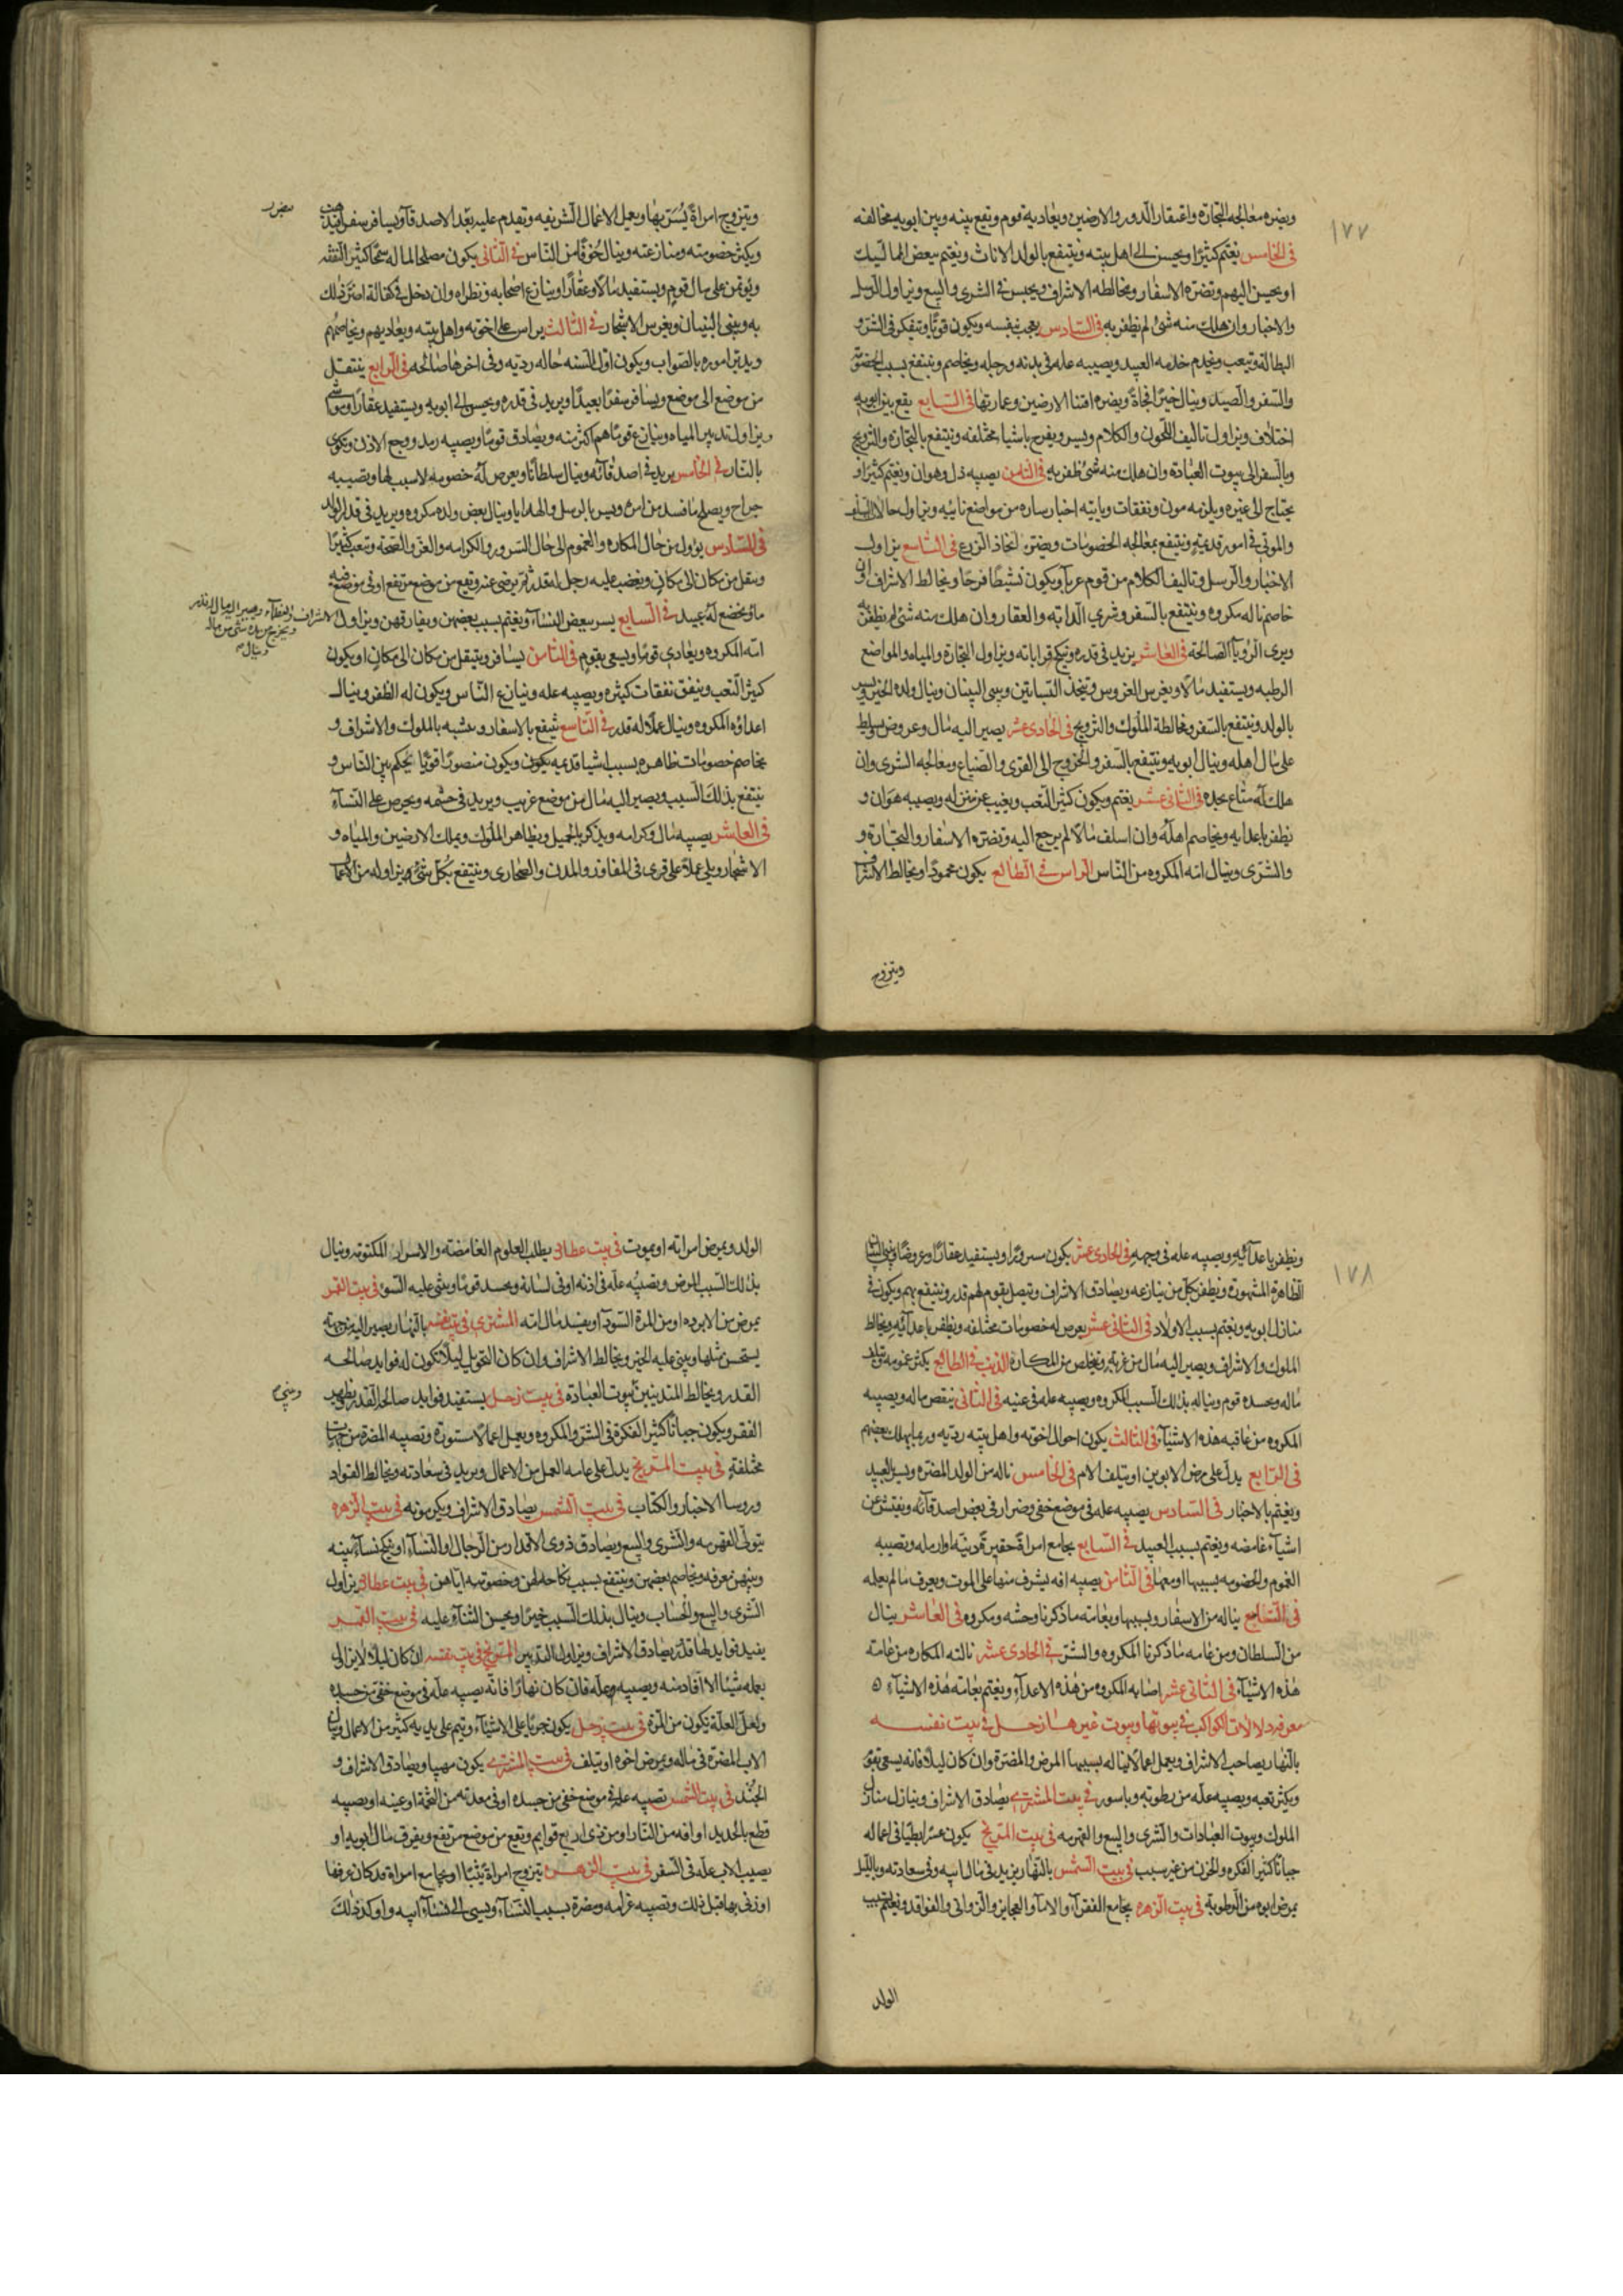 ١٧٧
ويضره معالجه التجارة واعتقار الدور والارضين ويعاديه قوم وتقع بينه وبين ابويه مخالفه
في الخامس يغتم كثيرًا ويحسن الى اهل بيته وينتفع بالولد الاناث ويغتم ببعض المماليك
او يحسن اليهم وتضره الاسفار ومخالطه الاشراف ويحبس في الشرى والبيع ويزاول الرسل
والاخبار وان هلك منه شئ لم يظفر به في السادس يعجب بنفسه ويكون قويًا ويتفكر في الشر و
البطالة ويتعب ويخدم خدمه العبيد ويصيبه علة في بدنه ورجله ويخاصم وينتفع بسبب الخصومة
والسفر والصيد وينال خيرًا فجاةً ويضره اقتنا الارضين وعمارتها في السابع يقع بين ابويه
اختلاف ويزاول تاليف اللحون والكلام ويسر ويفرح باشيا مختلفه وينتفع بالتجارة والتزويج
وبالسفر الى بيوت العبادة وان هلك منه شئ ظفر به في الثامن يصيبه ذل وهوان ويغتم كثيرًا و
يحتاج الى غيره ويلزمه مون ونفقات وياتيه اخبار ساره من مواضع نائيه ويزاول حالات السلف
والموتى في امور قديمة وينتفع بمعالجه الخصومات ويضره اتخاذ الزرع في التاسع يزاول
الاخبار والرسل وتاليف الكلام من قوم غربآ ويكون نشيطًا فرحًا ويخالط الاشراف وان
خاصم ناله مكروه وينتفع بالسفر وشرى الدابه والعقار وان هلك منه شئ لم يظفر به
ويرى الرويا الصالحة في العاشر يزيد في قدره وينكح قراباته ويزاول التجارة والمياه والمواضع
الرطبه ويستفيد مالًا ويغرس الغروس ويتخذ البساتين ويبنى البنيان وينال ولده الخير ويسر
بالولد وينتفع بالسفر ومخالطة الملوك والتزويج في الحادى عشر يصير اليه مال وعروض ويسلط
على مال اهله وينال ابويه وينتفع بالسفر والخروج الى القرى والضياع ومعالجه الشرى وان
هلك له متاع يجده في الثانى عشر يغتم ويكون كثير التعب ويغيب عن منزله ويصيبه هوان و
يظفر باعدايه ويخاصم اهله وان اسلف مالًا لم يرجع اليه وتضره الاسفار والتجارة و
والشرى وينال امه المكروه من الناس الراس في الطالع يكون محمودًا ويخالط الاشراف
ويتزوج
ويتزوج امراةً يُسَرّ بها ويعمل الاعمال الشريفه وتقدم عليه بعد الاصدقآ ويسافر سفر
ويكثر خصومته ومنازعته وينال خوفًا من الناس في الثانى يكون مصلحا لماله سمحًا كثير النفقه
ويؤتمن على مال قوم ويستفيد مالًا وعقارًا وينازع اصحابه ونظراه وان دخل في كفالة اضر ذلك
به ويبنى البنيان ويغرس الاشجار في الثالث يراس على اخوته واهل بيته ويعاديهم ويخاصمهم
ويدبر اموره بالصواب ويكون اول السنه حاله رديه وفى اخرها صالحه في الرابع ينتقل
من موضع الى موضع ويسافر سفرًا بعيدًا ويزيد في قدره ويحسن الى ابويه ويستفيد عقارًا ومواشى
ويزاول تدبير المياه وينازع قومًا هم اكثر منه ويصادق قومًا ويصيبه رمد ووجع الاذن ويكوى
بالنار في الخامس يزيد في اصدقائه وينال سلطانًا ويعرض له خصومه لا سبب لها وتصيبه
جراح ويصلح ما فسد من امره ويسر بالرسل والهدايا وينال بعض ولده مكروه ويزيد في قدر الولد
في السادس يؤول من حال المكاره والغموم الى حال السرور والكرامه والعز والصحة ويتعب كثيرًا
وينتقل من مكان الى مكان ويغضب عليه رجل له قدر ثم يرضى عنه ويقع من موضع مرتفع او في موضع فيه
ماؤ يخضع له عبيد في السابع يسر ببعض النسآ ويغتم بسبب بعضهن ويفارقهن ويزاول
امه المكروه ويعادى قومًا ويسعى بقوم في الثامن يسافر وينتقل من مكان الى مكان او يكون
كثير التعب وينفق نفقات كثيره ويصيبه علة وينازع الناس ويكون له الظفر وينال
اعداؤه المكروه وينال عملًا له قدر في التاسع ينتفع بالاسفار ويتشبه بالملوك والاشراف و
يخاصم خصومات ظاهره بسبب اشيا قديمه يكون ويكون منصورًا قويًا يحكم بين الناس و
ينتفع بذلك السبب ويصير اليه مال من موضع غريب ويزيد في حشمه ويحرص على النسآ
في العاشر يصيبه مال وكرامه ويذكر بالجميل ويظاهر الملوك ويملك الارضين والمياه و
الاشجار ويلى عملًا على قرى في المفاوز والمدن والصحارى وينتفع بكل شئ يزاوله من الاعمال
١٧٨
ويظفر باعدآئه ويصيبه علة في وجهه في الحادى عشر يكون مسرورًا ويستفيد عقارًا وعروضًا ويبنى البنيان
الظاهرة المشهورة ويظفر بكل من ينازعه ويصادق الاشراف ويتصل بقوم لهم قدر وينتفع بهم ويكون في
منازل ابويه ويغتم بسبب الاولاد في الثانى عشر يعرض له خصومات مختلفه ويظفر باعدآئه ويخالط
الملوك والاشراف ويصير اليه مال من غربة ويتخلص من المكاره الذنب في الطالع يكثر غمومه ويتلف
ماله ويحسده قوم ويناله بذلك السبب المكروه ويصيبه علة في عينيه في الثانى ينقص ماله ويصيبه
المكروه من عاقبه هذه الاشيآء في الثالث يكون احوال اخوته واهل بيته رديه وربما يهلك بعضهم
في الرابع يدل على مرض الابوين او يتلف الام في الخامس ناله من الولد المضره وبسبب العبيد
ويغتم بالاخبار في السادس يصيبه علة في موضع خفى وضرار في بعض اصدقائه ويفتش عن
اشيآء غامضه ويغتم بسبب العبيد في السابع يجامع امراةً حقيرةً دنيّه او ارمله وتصيبه
الغموم والخصومه بسببها او معها في الثامن يصيبه افه يشرف منها على الموت ويعرف ما لم يعمله
في التاسع يناله من الاسفار وبسببها وبعامته ما ذكرنا وحشه ومكروه في العاشر ينال
من السلطان ومن عامه ما ذكرنا المكروه والشر في الحادى عشر نالته المكاره من عامة
هذه الاشيآء في الثانى عشر اصابه المكروه من هذه الاعدآء ويغتم بعامة هذه الاشيآء
معرفة دلالات الكواكب في بيوتها وبيوت غيرها زحل في بيت نفسه
بالنهار يصاحب الاشراف ويعمل اعمالًا يناله بسببها المرض والمضرة وان كان ليلًا فانه يسعى بقوم
ويكثر تعبه ويصيبه علة من رطوبه وباسور في بيت المشترى يصادق الاشراف وينازل منازل
الملوك وبيوت العبادات والشرى والبيع والقهرمه في بيت المريخ يكون عسرًا بطيًا في اعماله
جبانًا كثير الفكره والحزن من غير سبب في بيت الشمس بالنهار يزيد في مال ابيه وفى سعادته وبالليل
يمرض ابوه من الرطوبة في بيت الزهره يجامع الفقرآء والامآ والعجايز والزوانى والفواقد ويغتم بسبب
الولد
الولد ويمرض امراته او يموت في بيت عطارد يطلب العلوم الغامضة والاسرار المكتومه وينال
بذلك السبب المرض وتصيبه علة في اذنه او في لسانه ويحسد قومًا ويثنى عليه السوء في بيت القمر
يمرض من الابرده او من المرة السودآ ويفسد مال امه المشترى في بيت نفسه بالنهار يصير اليه من جهة
يستحسن مثلها ويثنى عليه الخير ويخالط الاشراف وان كان التحويل ليلًا يكون له فوايد صالحه
القدر ويخالط المتدينين بيوت العبادة في بيت زحل يستفيد فوايد صالحة القدر يظهر
الفقر ويكون جبانًا كثير الفكرة في الشر والمكروه ويعمل اعمالًا مستورة وتصيبه المضرة من جهات
مختلفة في بيت المريخ يدل على عامه العمل من الاعمال ويزيد في سعادته ويخالط القواد
وروسا الاخبار والكتاب في بيت الشمس يصادق الاشراف ويكرمونه في بيت الزهره
يتولى القهرمه والشرى والبيع ويصادق ذوى الاقدار من الرجال او النسآء او ينكح نسآء بينه
وبينهن معرفه ويخاصم بعضهن وينتفع بسبب نكاحه لهن وخصومته اياهن في بيت عطارد يزاول
الشرى والبيع والحساب وينال بذلك السبب خيرًا ويحسن الثنآء عليه في بيت القمر
يفيد فوايد لها قدر يصادق الاشراف ويزاول التدبير المريخ في بيت نفسه ان كان ليلًا لا يزال
يعمله شيئا الا افاد منه ويصيبه علة فان كان نهارًا فانه يصيبه علة في موضع خفى من جسده
ولعل العلة تكون من المرة في بيت زحل يكون جريًا على الاشيآء ويتم على يديه كثير من الاعمال وينال
الاب المضرة في ماله ويمرض اخوه او يتلف في بيت المشترى يكون مهيبا ويصادق الاشراف و
الجند في بيت الشمس تصيبه علة في موضع خفى من جسده او في معدته من التخمة او عينه او يصيبه
قطع بالحديد او افه من النار او من ذى اربع قوايم ويقع من موضع مرتفع ويفرق مال ابويه او
يصيب الاب علة في السفر في بيت الزهره يتزوج امراةً ثيبًا او يجامع امراة قد كان عرفها
او زنى بها قبل ذلك وتصيبه غرامه ومضرة بسبب النسآء ويسى الى نسآء ابيه واوكد ذلك